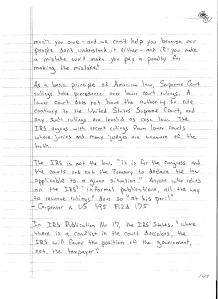 most you owe - and we can't help you because our
people don't understand it either - and if you make
a mistake we'll make you pay a penalty for
making the mistake."
As a basic principle of American law, Supreme Court
rulings take precedence over lower court rulings. A
lower court does not have the authority to rule
contrary to the United States Supreme Court, and
any such rulings are invalid as case law. The
IRS argues with secret rulings from lower courts
where juries and many judges are unaware of the
truth.
The IRS is not the law "it is for the congress and
the courts and not the Treasury to declare the law
applicable to a given situation." Anyone who relies
on the IRS' "informal publications, all the way
to revenue rulings" does so "at his peril"
- Carpenter v. US 495 F.2d 175
In IRS Publication No 17, the IRS states, "where
there is a conflict in the court decisions, the
IRS will favor the position of the government,
not the taxpayer."